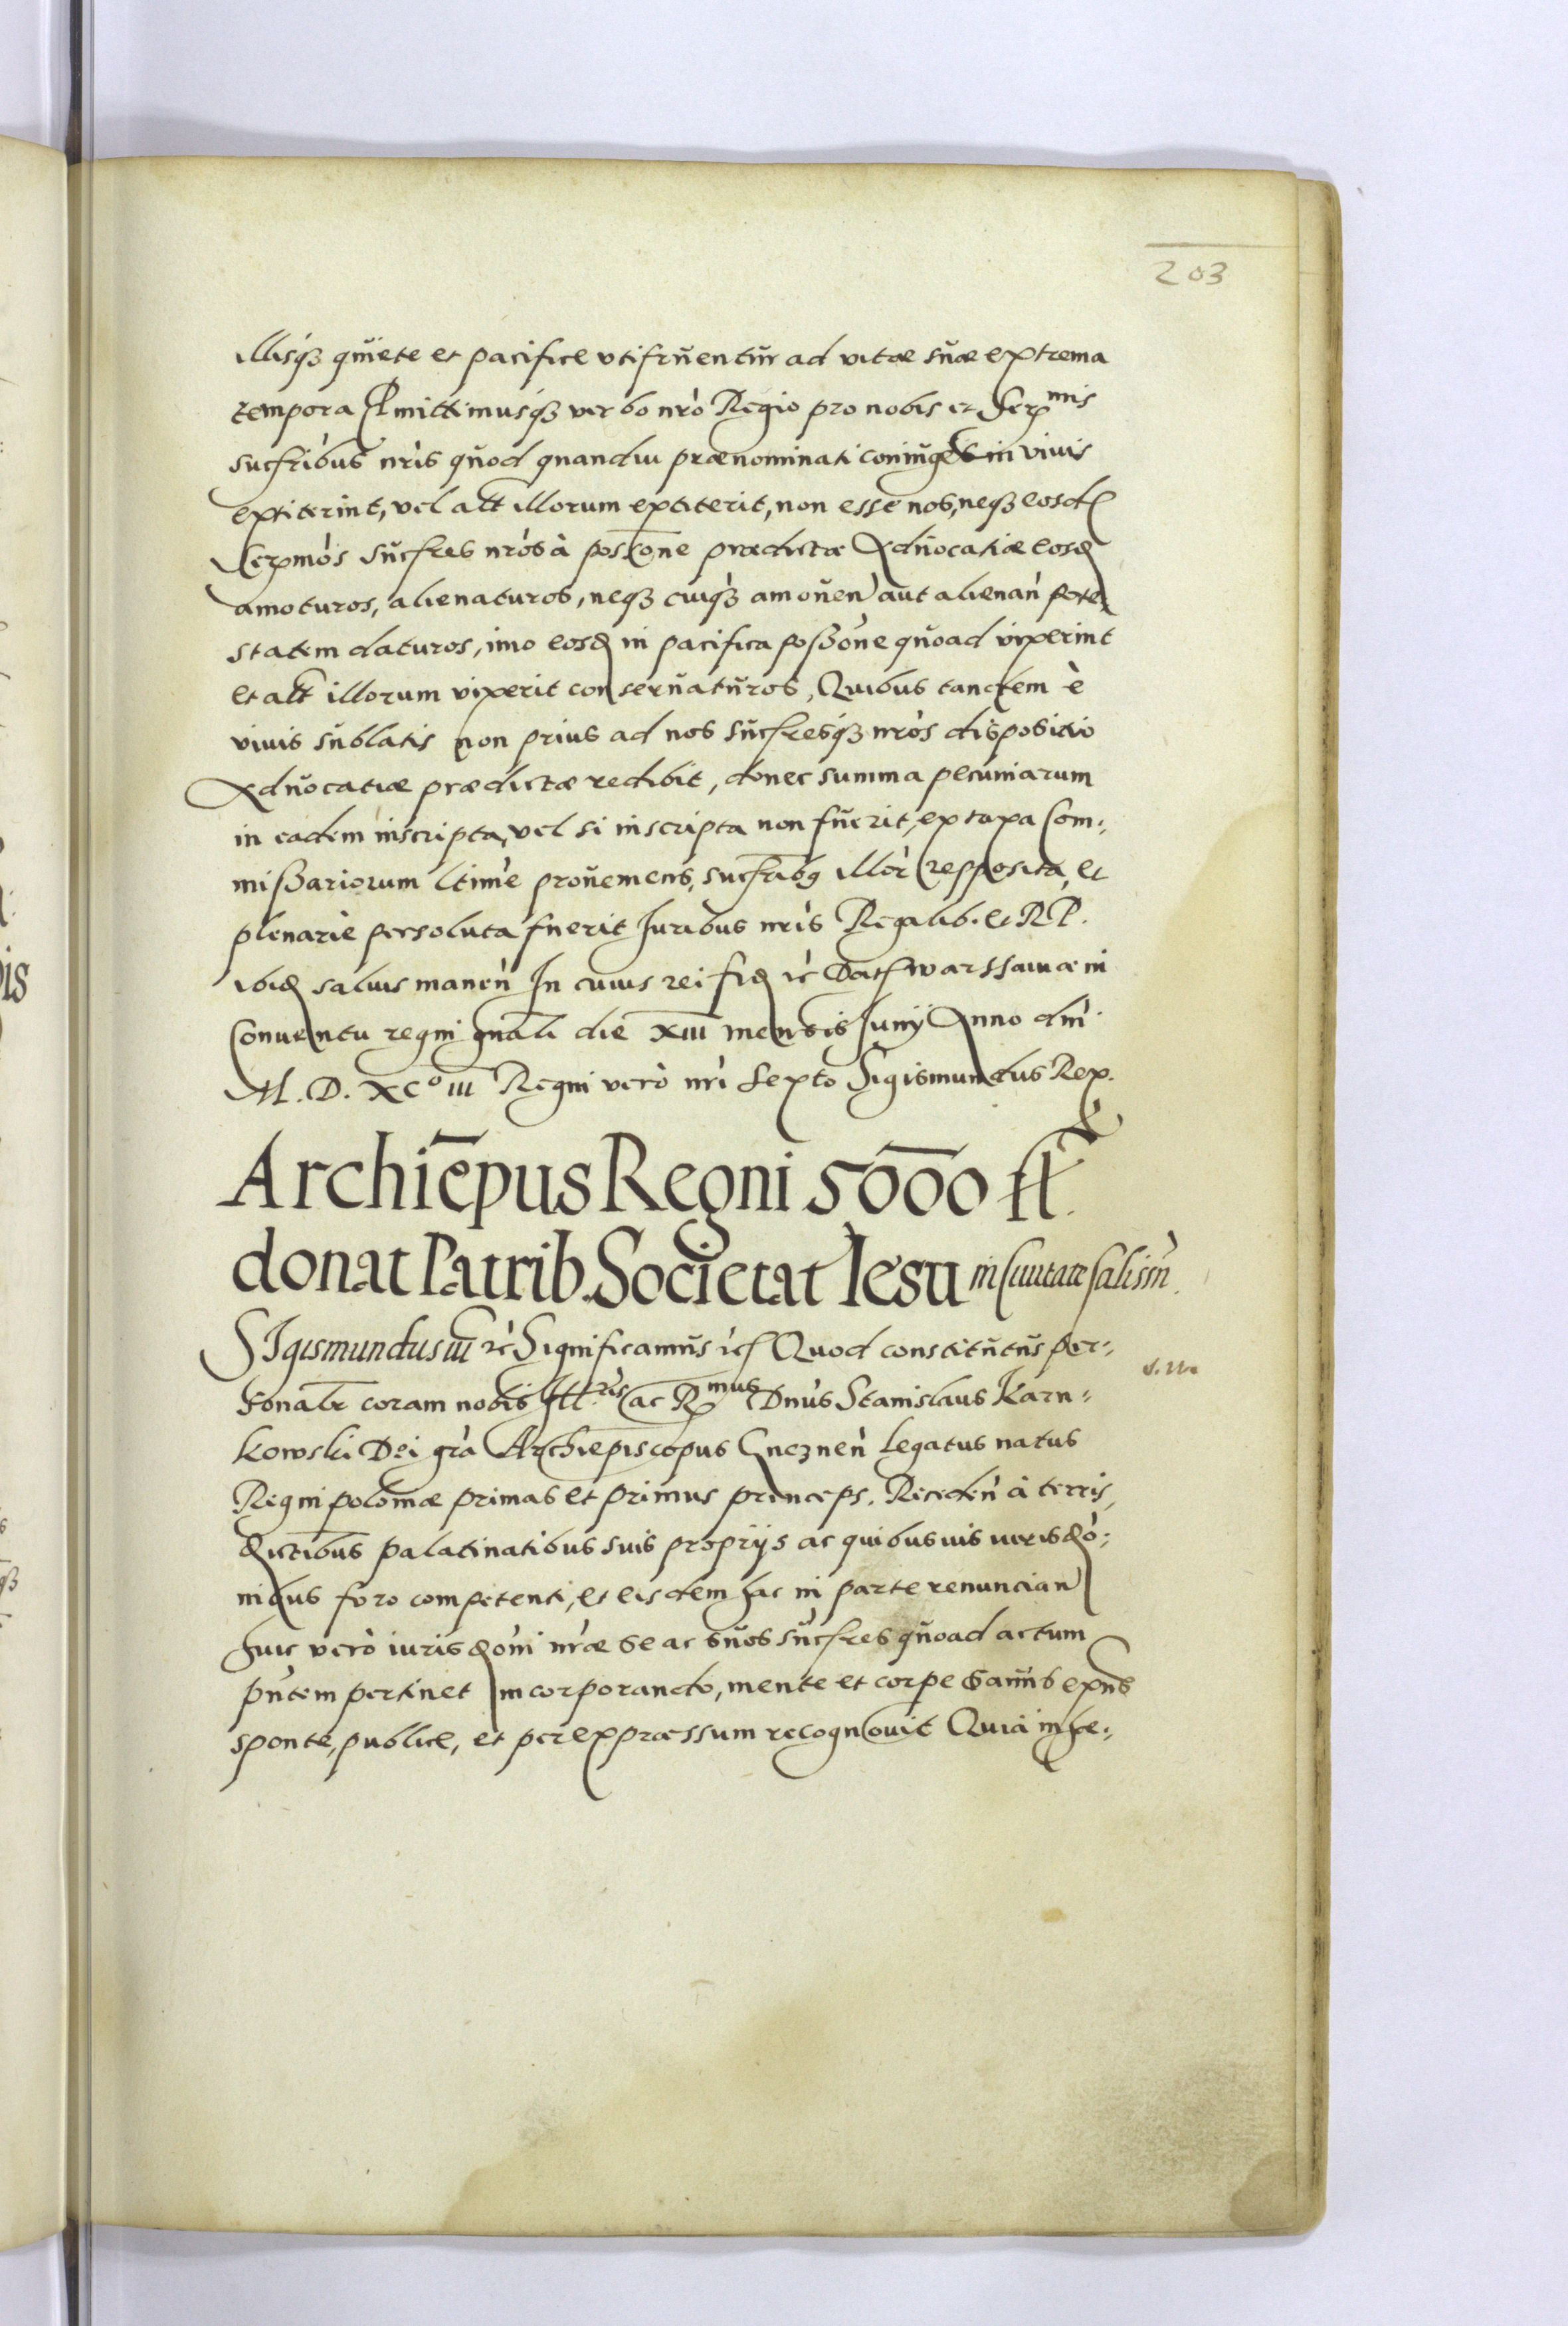 203
illisq3 quiete et pacifice utifruentur ad vitæ suæ extrema
tempora Pmittimusq3 verbo nrò Regio pro nobis et Serenmis
sucfribus nrìs quod quandiu prænominati coniuges in vivis
extiterint, vel alt illorum extiterit, non esse nos, neq3 eosd
Sermòs sucfres nròs à possone prædictæ Advocatiæ eosd
amoturos, alienaturos, neq3 cuiq3 amouen aut alienan pote
statem daturos, imo eosd in pacifica poßone quoad vixerint
et alt illorum vixerit conservaturos, Quibus tandem è
vivis sublatis non prius ad nos sucfresq3 nròs dispositio
Advocatiæ prædictæ redibit, donec summa pecuniarum
in eadem inscripta, vel si inscripta non fuerit, ex taxa Com:
mißariorum ltime provemens, sucfribq illor repposita, et
plenariè persoluta fuerit Iuribus nrìs Regalib. et RP.
ibid salvis manen In cuius rei fid rc Dat Warssaviæ in
Conventu regni gnali die XIII mensis Iunij Anno dni
M. D. XCo III Regni verò nrì Sexto Sigismundus Rex.
Archiepus Regni 5000 fl.
donat Patrib. Societat Iesu in Civitate Calissin.
SIgismundus III rc Significamus rc Quod constitutus per:
sonalr coram nobis Illris ac Rmus Dnus Stanislaus Karn:
kowski Dei grà Archiepiscopus Gneznen Legatus natus
Regni poloniæ primas et primus princeps. Receden à terris,
districtibus palatinatibus suis proprijs ac quibusuis iurisdo:
nibus foro competenti, et eisdem hac in parte renuncian
huic verò iurisdoni nræ se ac suos sucfres quoad actum
pntem pertinet incorporando, mente et corpe sanus exns
sponte, publice, et per expræssum recognovit Quia in se: